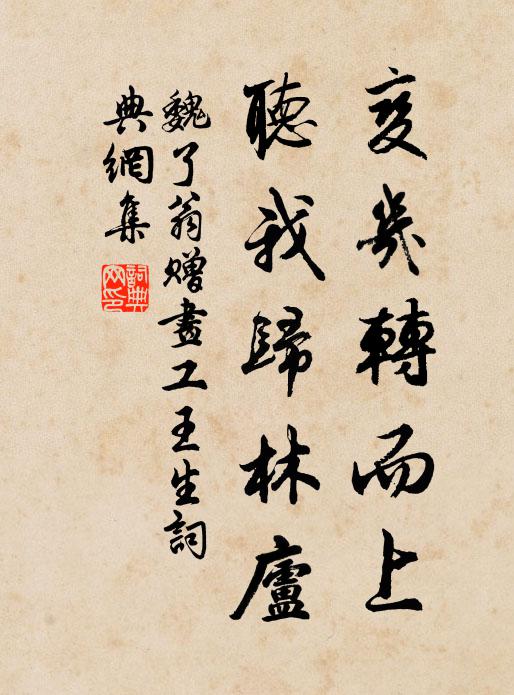 变幾轉而上
聽我歸林廬
魏了翁贈畫工王生詞
典網集
詞典
网印